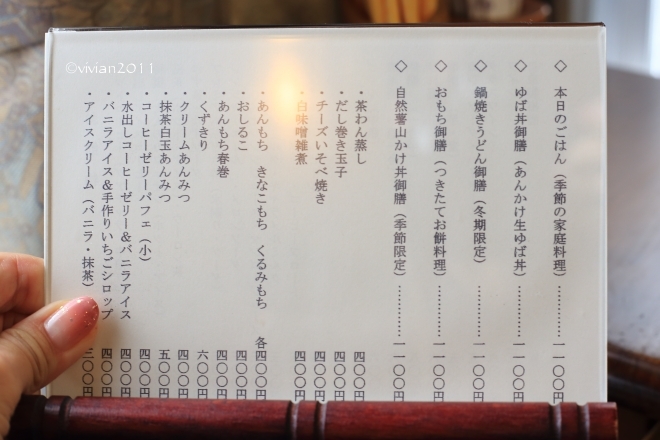 ©vivian2011
◇ 本日のごはん（季節の家庭料理）…………一一〇〇円
◇ ゆば丼御膳（あんかけ生ゆば丼）…………一一〇〇円
◇ 鍋焼きうどん御膳（冬期限定）…………一一〇〇円
◇ おもち御膳（つきたてお餅料理）…………一一〇〇円
◇ 自然薯山かけ丼御膳（季節限定）…………一一〇〇円
・茶わん蒸し 四〇〇円
・だし巻き玉子 四〇〇円
・チーズいそべ焼き 四〇〇円
・白味噌雑煮 四〇〇円
・あんもち きなこもち くるみもち 各四〇〇円
・おしるこ 四〇〇円
・あんもち春巻 四〇〇円
・くずきり 六〇〇円
・クリームあんみつ 四〇〇円
・抹茶白玉あんみつ 五〇〇円
・コーヒーゼリーパフェ（小） 四〇〇円
・水出しコーヒーゼリー＆バニラアイス 四〇〇円
・バニラアイス＆手作りいちごシロップ 四〇〇円
・アイスクリーム（バニラ・抹茶） 三〇〇円